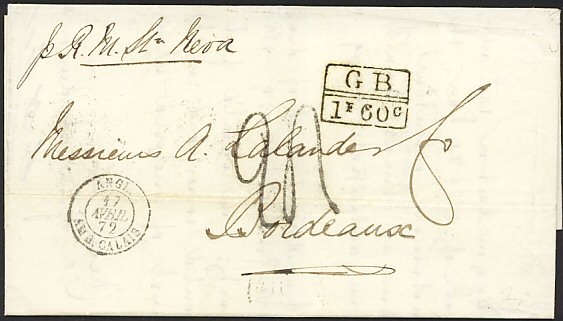 p R. M. Str Neva
G B
1F 60c
Messieurs A. Lalande &
Bordeaux
ANGL.
17
AVRIL
72
AMB. CALAIS